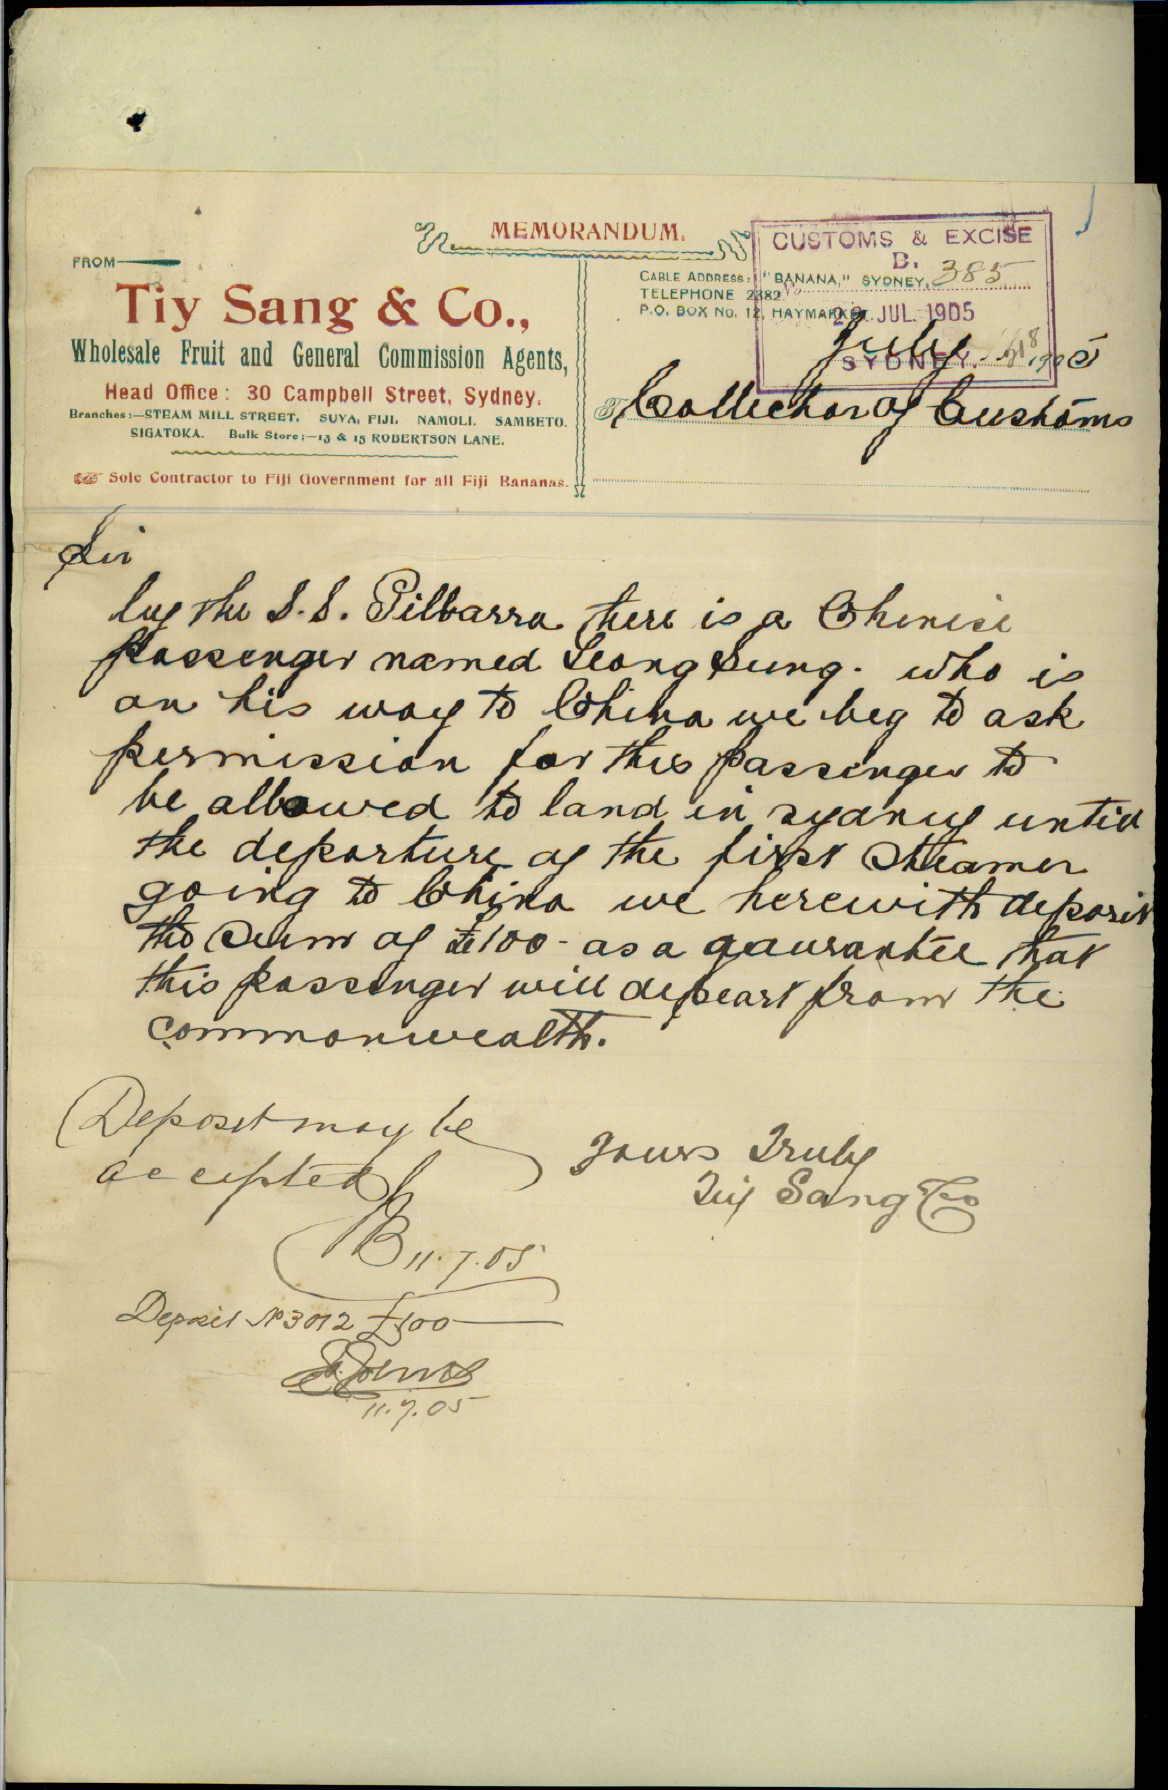 MEMORANDUM.
FROM
Tiy Sang & Co.,
Wholesale Fruit and General Commission Agents,
Head Office: 30 Campbell Street, Sydney.
Branches:—STEAM MILL STREET, SUVA, FIJI, NAMOLI, SAMBETO.
SIGATOKA. Bulk Store:—13 & 15 ROBERTSON LANE.
Sole Contractor to Fiji Government for all Fiji Bananas.
CUSTOMS & EXCISE
B.
385
CABLE ADDRESS: "BANANA," SYDNEY.
TELEPHONE 2382
P.O. BOX No. 12, HAYMARKET.
JUL. 1905
SYDNEY.
July 1905
To Collector of Customs
Sir
by the S.S. Pilbarra there is a Chinese
passenger named Leong Sung. who is
on his way to China we beg to ask
permission for this passenger to
be allowed to land in sydney untill
the departure of the first Steamer
going to China we herewith deposit
the Sum of £100 - as a gaurantee that
this passenger will depeart from the
commonwealth.
Yours Truly
Tiy Sang & Co
Deposit may be
accepted
11.7.05
Deposit No 3012 £100
11.7.05